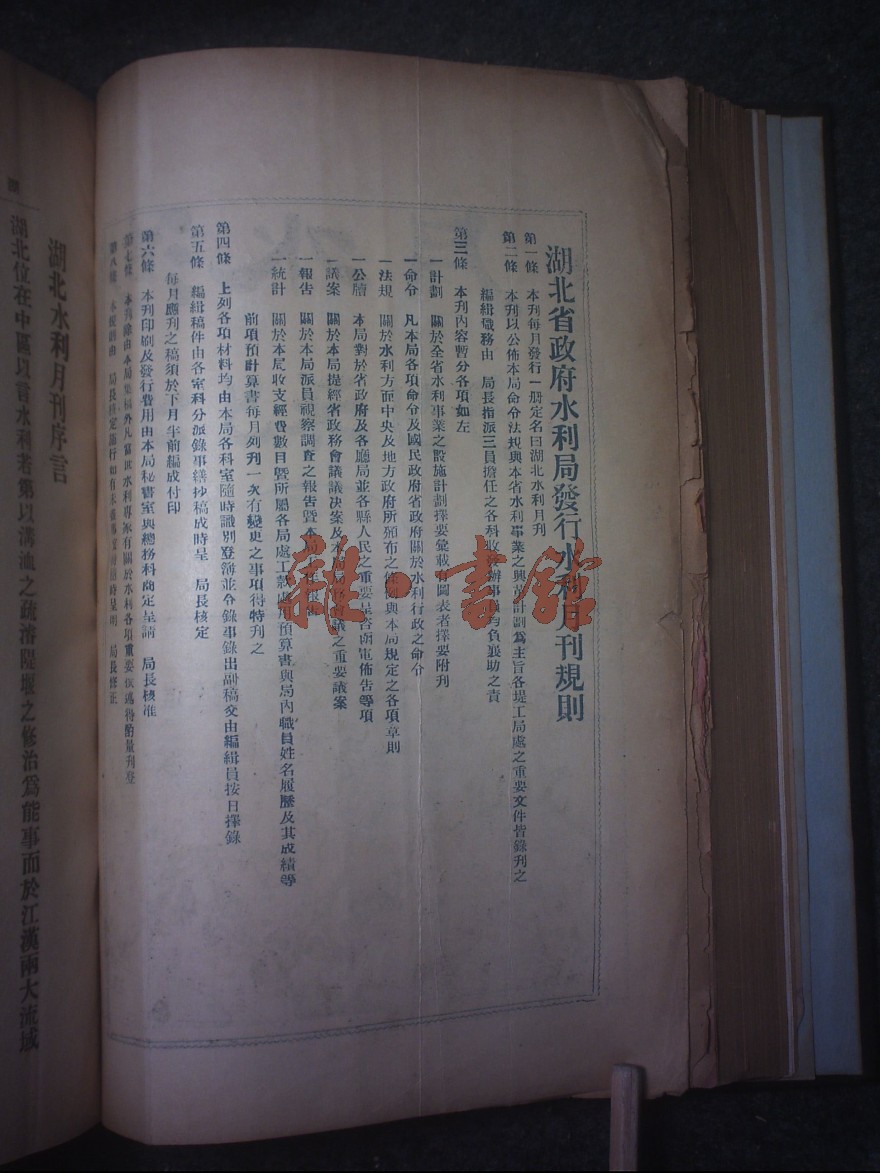 湖北省政府水利局發行水利月刊規則
第一條　本刊每月發行一册定名曰湖北水利月刊
第二條　本刊以公佈本局命令法規與本省水利事業之興革計劃爲主旨各堤工局處之重要文件皆錄刊之
編緝職務由　局長指派三員擔任之各科收發辦事員均負襄助之責
第三條　本刊內容暫分各項如左
一計劃　關於全省水利事業之設施計劃擇要彙載有圖表者擇要附刊
一命令　凡本局各項命令及國民政府省政府關於水利行政之命令
一法規　關於水利方面中央及地方政府所頒布之條例與本局規定之各項章則
一公牘　本局對於省政府及各廳局並各縣人民之重要呈咨函電佈告等項
一議案　關於本局提經省政務會議議决案及本局局務會議之重要議案
一報告　關於本局派員視察調查之報告暨本局工作報告
一統計　關於本局收支經費數目暨所屬各局處工欵處用預算書與局內職員姓名履歷及其成績等
前項預計算書每月列刊一次有變更之事項得特刊之
第四條　上列各項材料均由本局各科室隨時識別登簿並令錄事錄出副稿交由編緝員按日擇錄
第五條　編緝稿件由各室科分派錄事繕抄稿成時呈　局長核定
每月應刊之稿須於下月半前編成付印
第六條　本刊印刷及發行費用由本局秘書室與總務科商定呈請　局長核准
第七條　本刊除由本局集稿外凡富於水利專家有關於水利各項重要 得酌量刊登
第八條　本規則由　局長核定施行如有未盡事宜得隨時呈明　局長修正
湖北水利月刊序言
湖北位在中區以言水利若第以溝洫之疏濬隄堰之修治爲能事而於江漢兩大流域